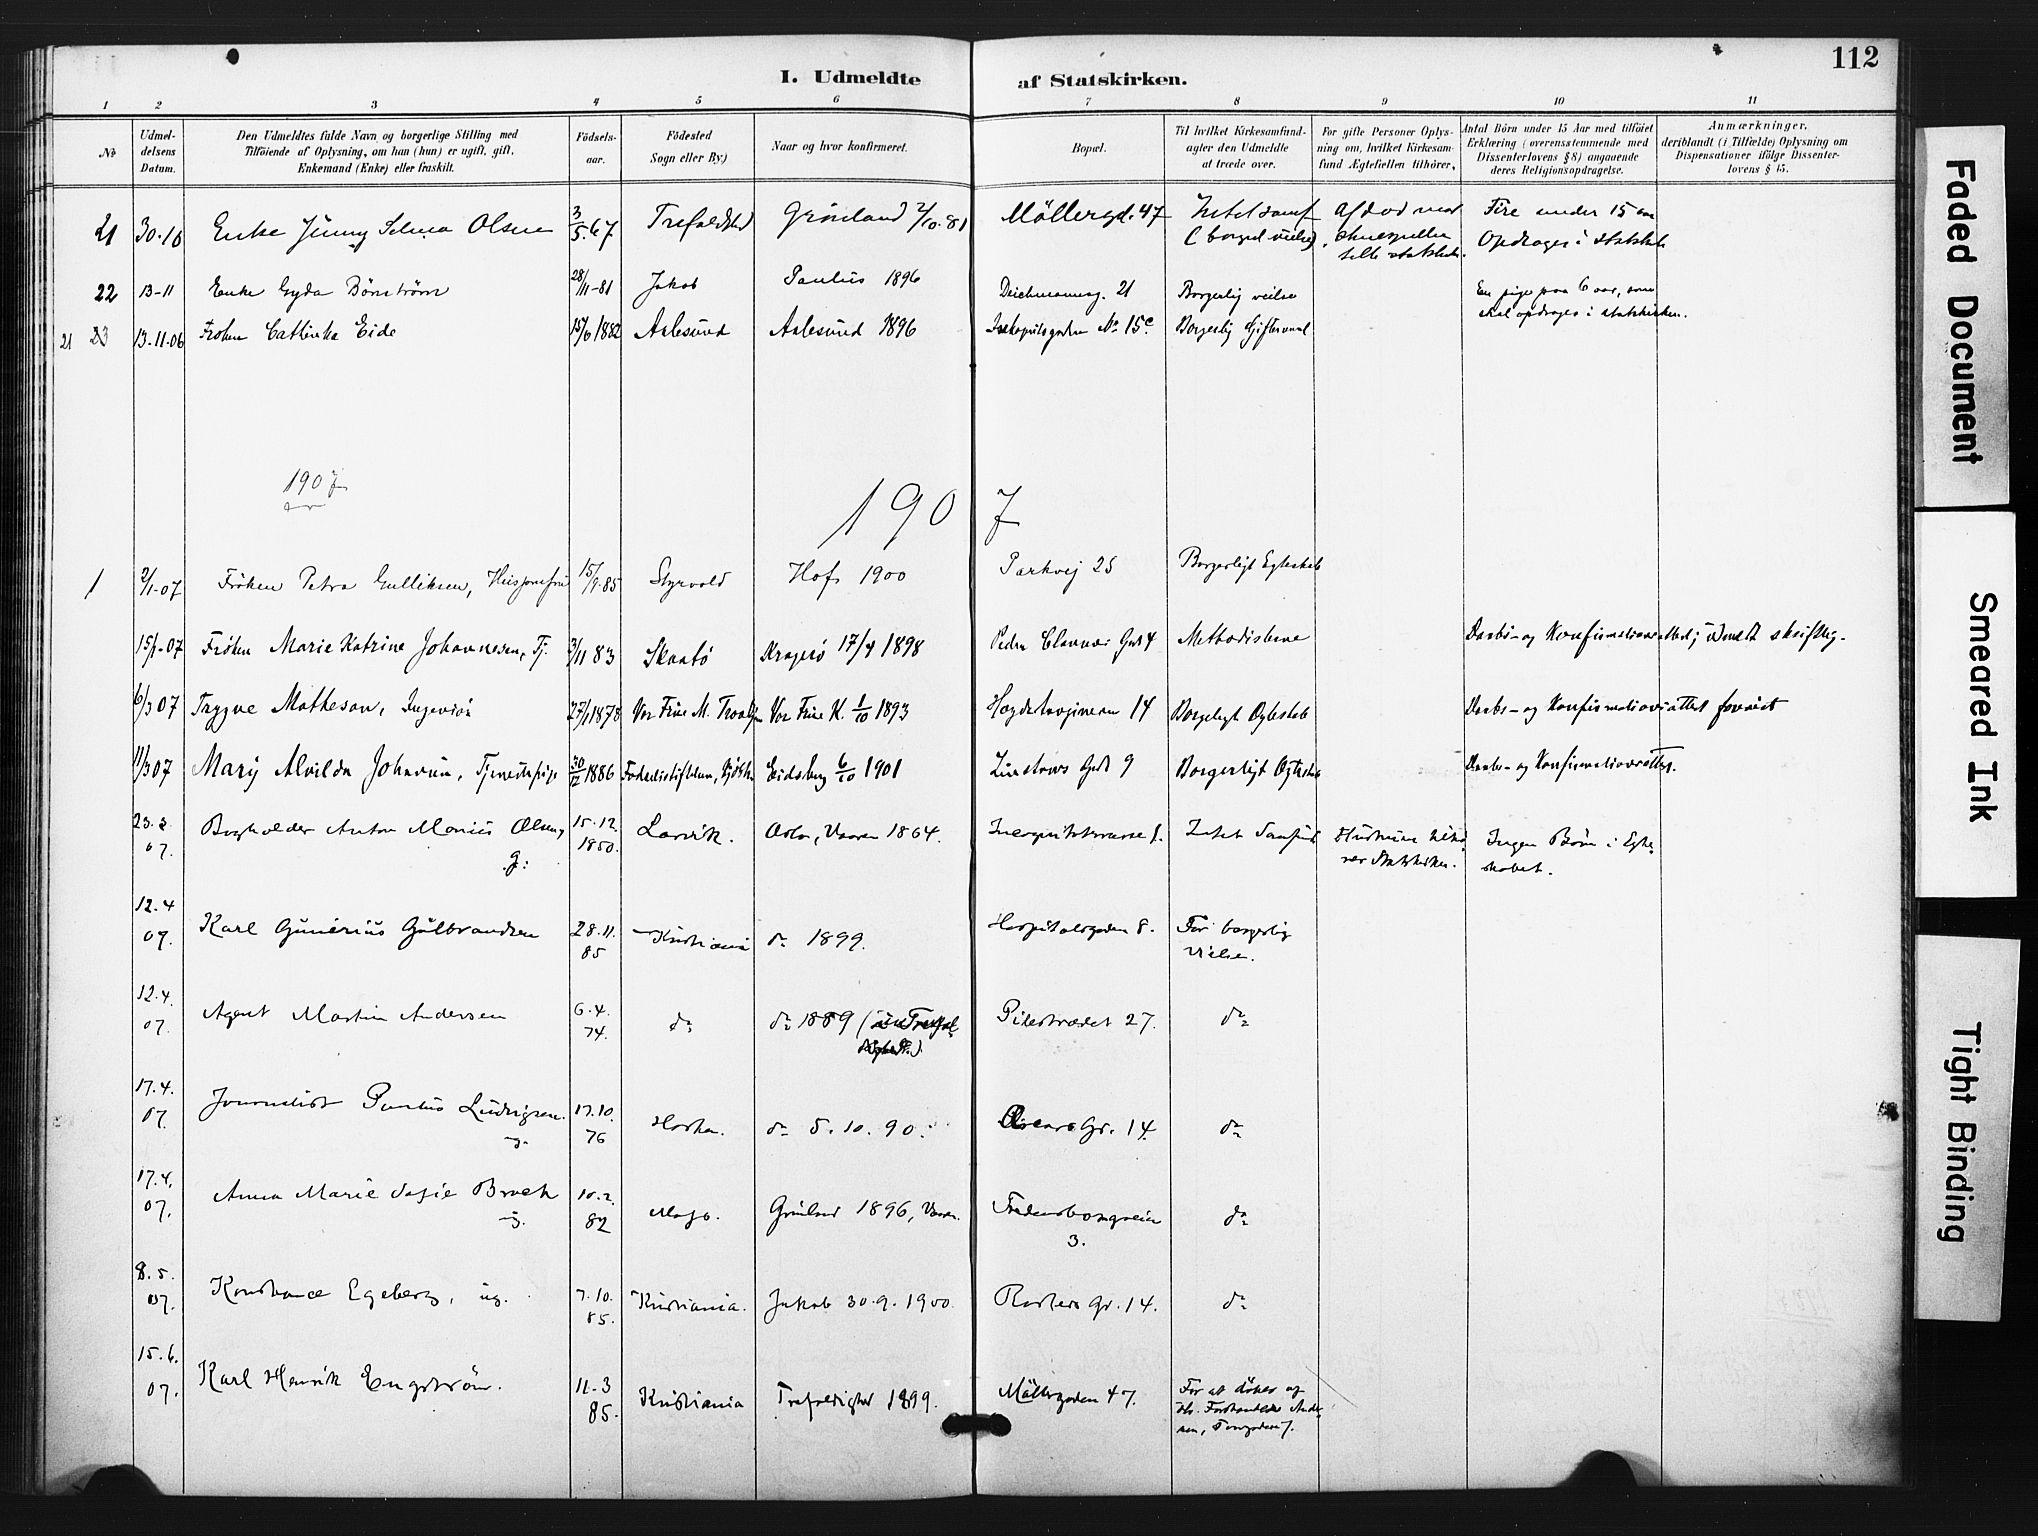 112
I. Udmeldte af Statskirken.
1 2 3 4 5 6 7 8 9 10 11
No
Udmeldelsens Datum.
Den Udmeldtes fulde Navn og borgerlige Stilling med
Tilföiende af Oplysning, om han (hun) er ugift, gift,
Enkemand (Enke) eller fraskilt.
Födselsaar.
Födested
Sogn eller By.)
Naar og hvor konfirmeret.
Bopæl.
Til hvilket Kirkesamfund
agter den Udmeldte
at træde over.
For gifte Personer Oplysning om, hvilket Kirkesamfund Ægtefællen tilhörer.
Antal Börn under 15 Aar med tilföiet
Erklæring (overensstemmende med
Dissenterlovens § 8) angaaende
deres Religionsopdragelse.
Anmærkninger,
deriblandt (i Tilfælde) Oplysning om
Dispensationer ifölge Dissenterlovens § 15.
21 30-10 Enke Jünny Selma Olsen 3/5.67 Grönland 2/10.81 Möllergd. 47 Intet samf (borgerl. vielse) Fire under 15 aar
Opdrages i statskk
22 13-11 Enke Gyda Bönström 28/11-81 Jakob Paulus 1896 Deichmannsg. 21 Borgerlig vielse En pige paa 6 aar, som
skal opdrages i statskirken.
21 23 13-11-06 Frøken Cathinka Eide 15/6 1882 Aalesund Aalesund 1896 No 15c Borgerlig Giftermaal
1907
1907
1 2/1-07 Fröken Petra Gulliksen, Husjomfru 15/9-85 Styrvold Hof 1900 Parkvej 25 Borgerligt Egteskab
15/1-07 Fröken Marie Katrine Johannesen, Tj. 3/11 83 Skaatö Kragerö 17/4 1898 Peder Clausens Gd 4 Methodisterne Daabs- og Konfirmationsattest; udmeldt skriftlig.
6/3 07 Trygve Matheson, Ingeniör 27/1 1878 Vor Frue K. 1/10 1893 14 Borgerligt Egteskab Daabs- og Konfirmationsattest forevist
11/3 07 Mary Alvilda Johansen, Tjenestepige 30/12 1886 Eidsberg 6/10 1901 Gd 9 Borgerligt Egteskab Daabs- og Konfirmationsattest.
23.3.07. Bogholder Anton Marius Olsen, g: 15.12.1850. Larvik. Oslo, Vaaren 1864. Intet Samfund Hustruen tilhörer Statskirken. Ingen Börn i Egteskabet.
12.4 07. Karl Günerius Gülbrandsen 28.11.85 Kristiania do 1899. Hospitalsgaden 8. For borgerlig
vielse.
12.4.07. Agent Martin Andersen 6.4.74. do do 1889 Pilestrædet 27. do
17.4.07. Journalist Paulus Ludvigsen. ug. 17.10 76 do 5.10.90. Gr. 14. do
17.4.07. Anna Marie Sofie Braek ug. 10.2.82 Moss. Grönland 1896, Vaaren. Fredensborgveien
3. do
8.5.07. Konstance Egeberg, ug. 7.10.85. Kristiania. Jakob 30.9.1900. Gr. 14. do
15.6.07. Karl Henrik Engström. 11-3 85. Kristiania Trefoldighed 1899. Möllergaden 47. For at döbes af
Hr. Forstander Andersen, Torvgaden 7.
Faded Document
Smeared Ink
Tight Binding